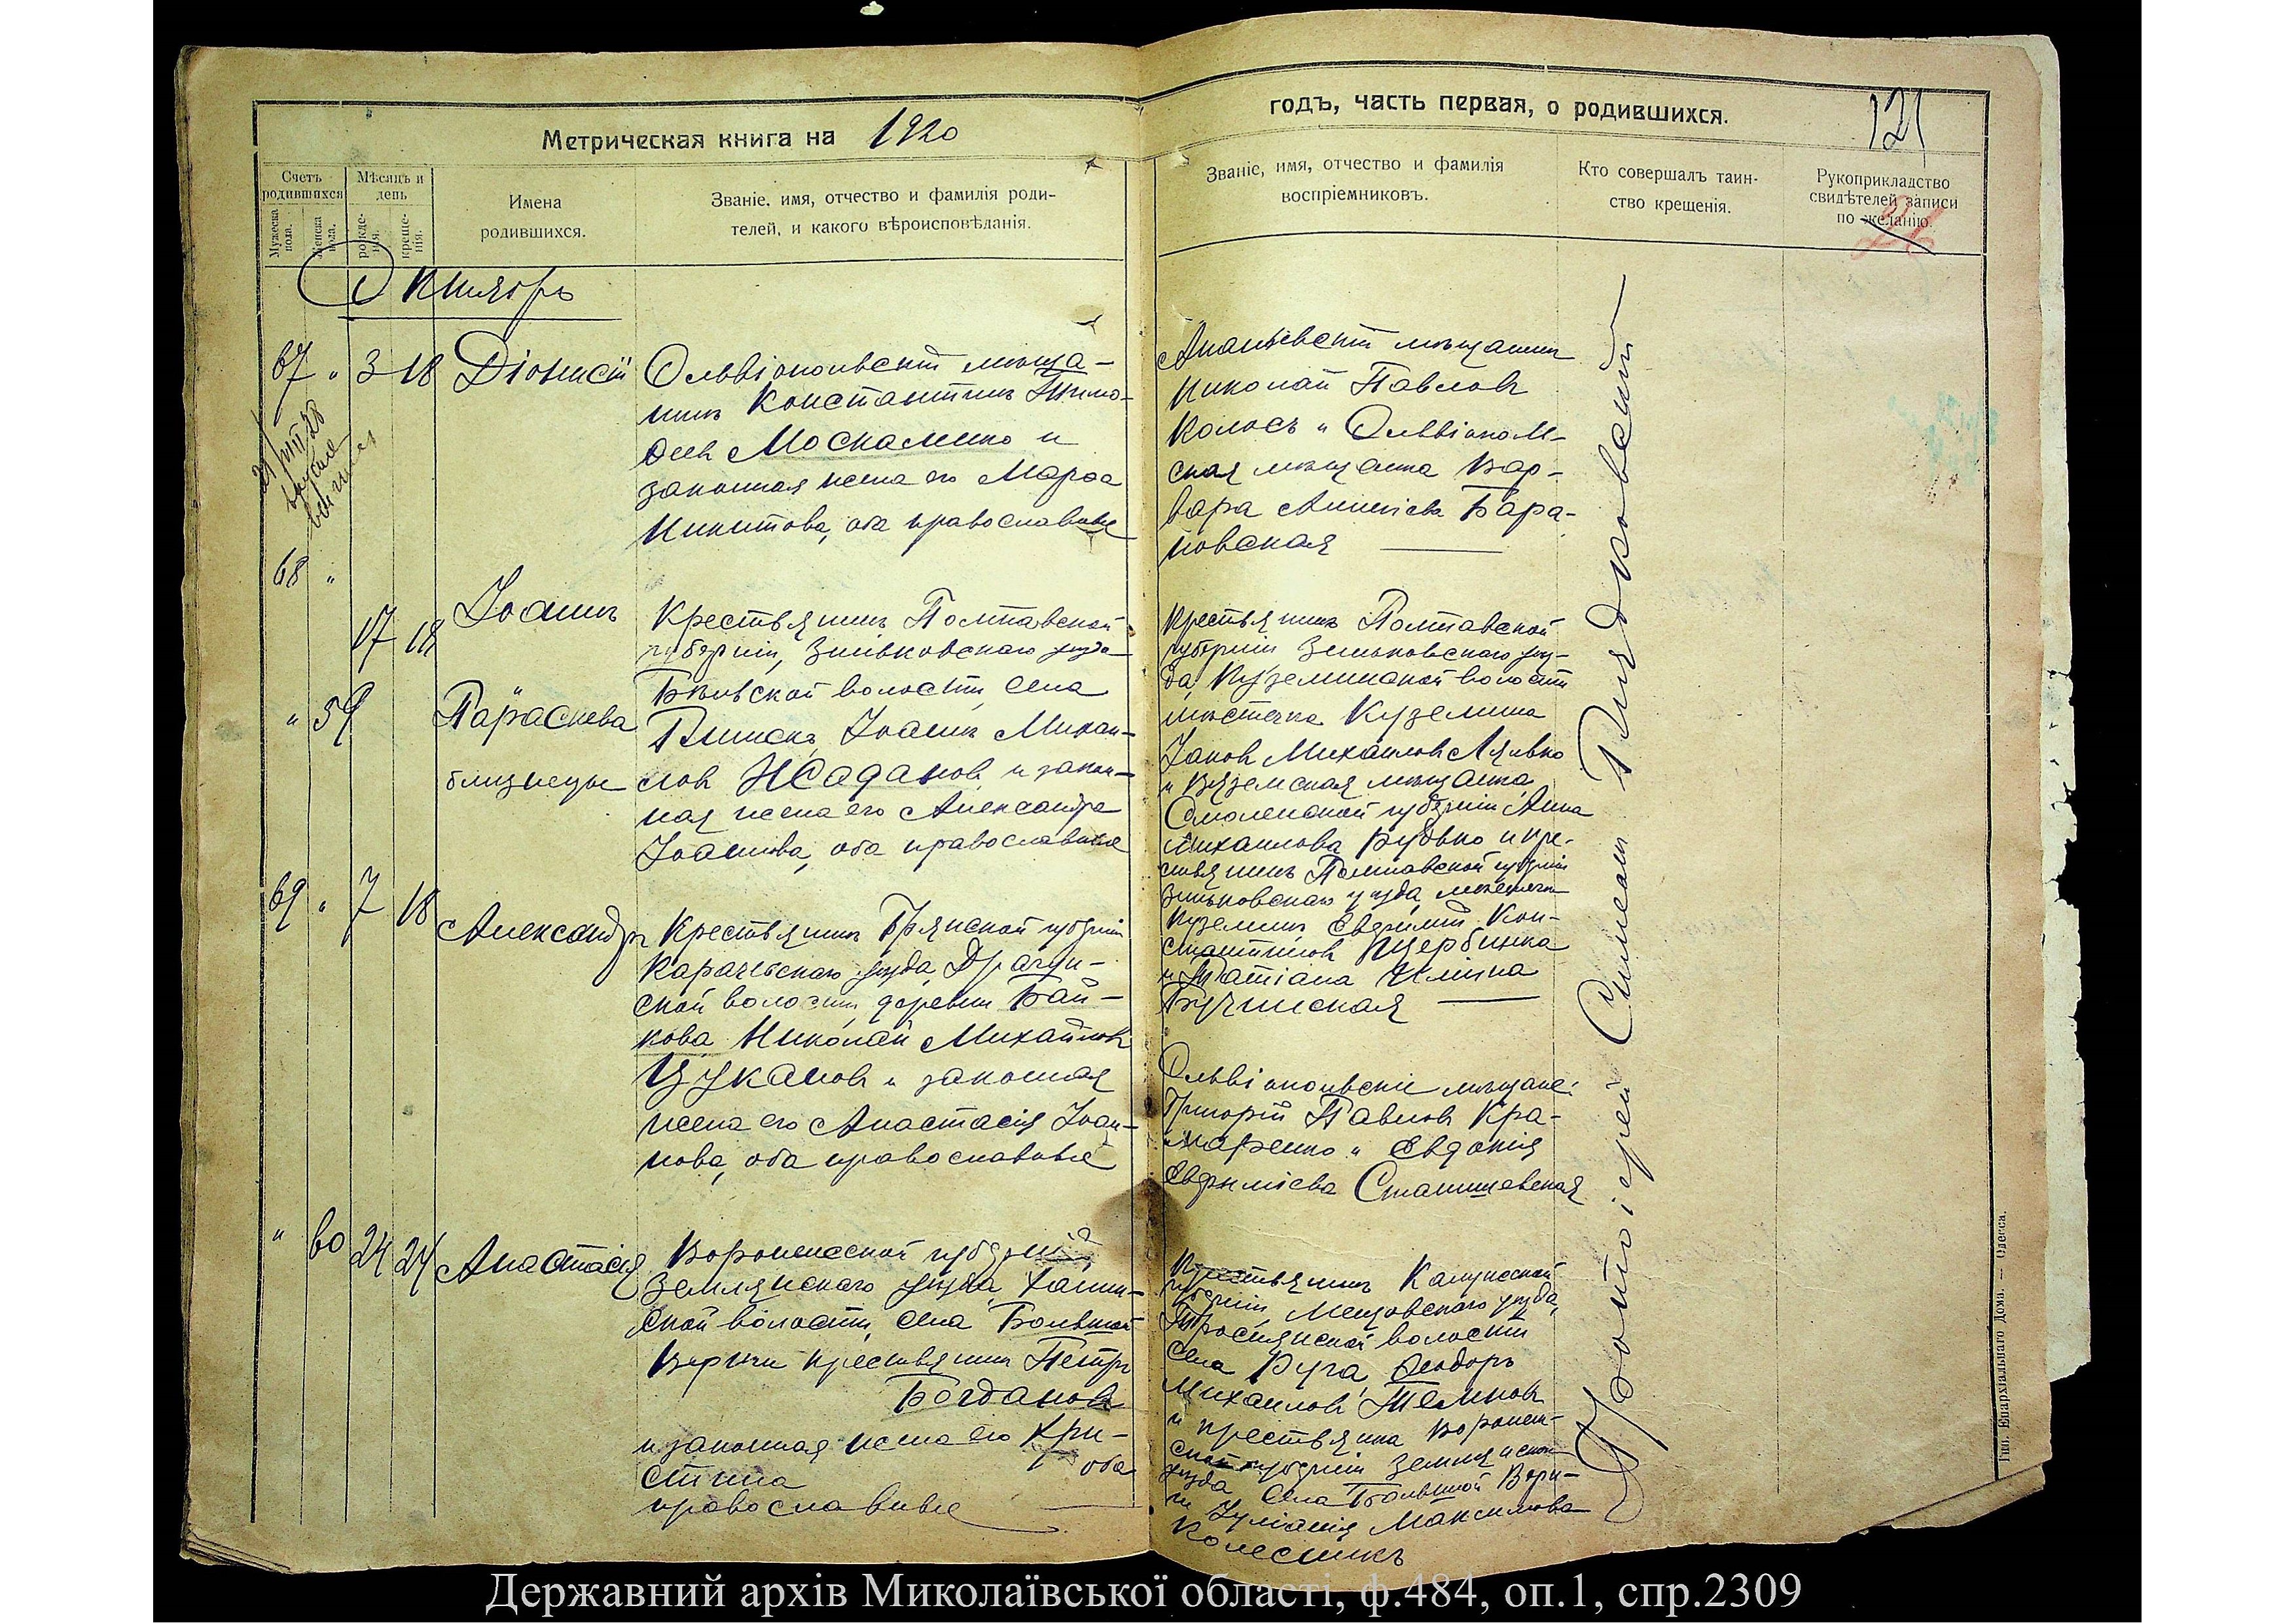 Метрическая книга на 1920
годъ, часть первая, о родившихся.
121
26
Счетъ родившихся
Мужеска пола.
Женска пола.
Мѣсяцъ и день
рожде-
нія.
креще-
нія.
Имена
родившихся.
Званіе, имя, отчество и фамилія роди-
телей, и какого вѣроисповѣданія.
Званіе, имя, отчество и фамилія
воспріемниковъ.
Кто совершалъ таин-
ство крещенія.
Рукоприкладство
свидѣтелей записи
по желанію.
Октябрь
67 " 3 18 Діонисій
Ольвіопольскій мѣща-
нинъ Константинъ Тимо-
ѳеевъ Москаленко и
законная жена его Марѳа
Никитова, оба православные
Ананьевскій мѣщанинъ
Николай Павловъ
Колосъ и Ольвіополь-
ская мѣщанка Вар-
вара Барa-
новская
68 "
17 18 Іоаннъ
" 59 Параскева
близнецы
Крестьянинъ Полтавской
губерніи, Зиньковскаго уѣзда
волости, села
Іоаннъ Михаи-
ловъ Жадановъ и закон-
ная жена его Александра
Іоаннова, оба православные
Крестьянинъ Полтавской
губерніи Зиньковскаго уѣз-
да, Куземинской волости
мѣстечка Куземина
Іаковъ Михаиловъ Лявко
и Вяземская мѣщанка
Смоленской губерніи Анна
Михаилова Рудько и кре-
стьянинъ Полтавской губерніи
Зиньковскаго уѣзда, мѣстечка
Куземина Евѳимій Кон-
стантиновъ Щербинка
и Татіана Ильина
Бучинская
69 " 7 18 Александръ
Крестьянинъ Брянской губерніи
Карачевскаго уѣзда, Драгун-
ской волости, деревни Бай-
кова Николай Михайловъ
Цукановъ и законная
жена его Анастасія Іоан-
нова, оба православные
Ольвіопольскіе мѣщане:
Григорій Павловъ Кра-
маренко и Евдокія
Евѳиміева Сташевская
" 60 24 24 Анастасія
Воронежской губерніи,
Землянскаго уѣзда,
ской волости, села Большой
Верейки крестьянинъ Петръ
Богдановъ
и законная жена его Хри-
стина оба
православные
Крестьянинъ Калужской
губерніи, Мещовскаго уѣзда,
волости
села Руча, Ѳеодоръ
Михаиловъ Темновъ
и крестьянка Воронеж-
ской губерніи Землянскаго
уѣзда села Большой Верей-
ки Іуліанія Максимова
Колесникъ
Протоіерей Симеонъ
Тип. Епархіальнаго Дома. — Одесса.
Державний архів Миколаївської області, ф.484, оп.1, спр.2309